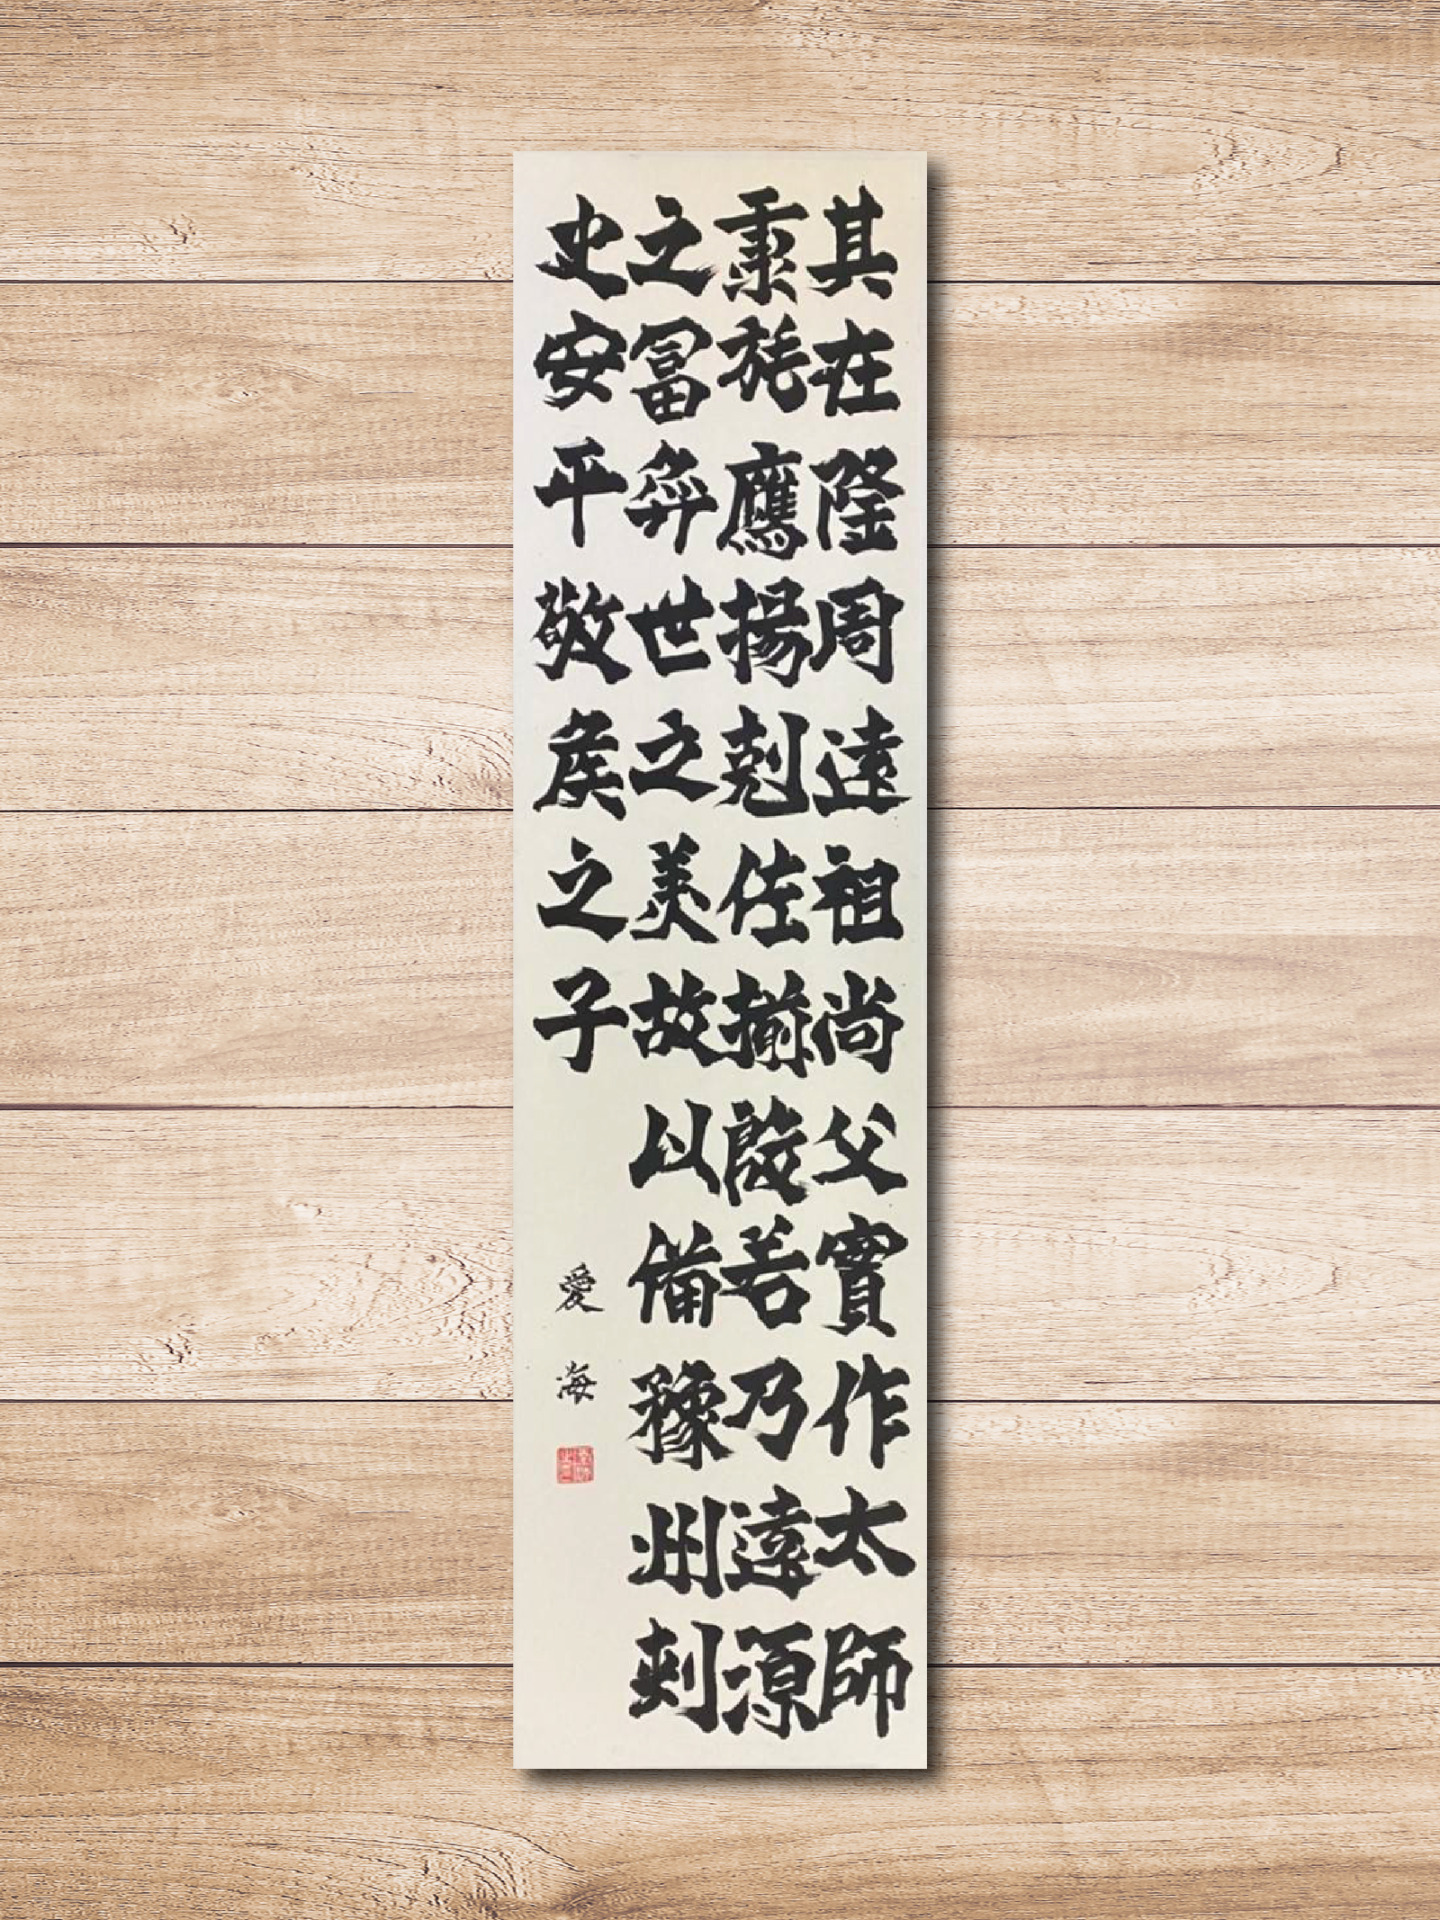 其在隆周遠祖尚父實作太師
秉旄鷹揚剋佐揃殷若乃遠源
之冨弈世之美故以備豫州刺
史安平敬侯之子
愛海